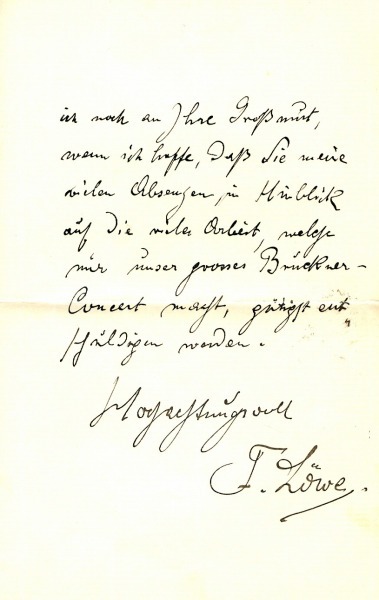 ich noch an Ihre Großmut,
wenn ich hoffe, daß Sie meine
vielen Absenzen, in Hinblick
auf die viele Arbeit, welche
mir unser grosses Bruckner-
Concert macht, gütigst ent
schuldigen werden.
Hochachtungsvoll
F. Löwe.